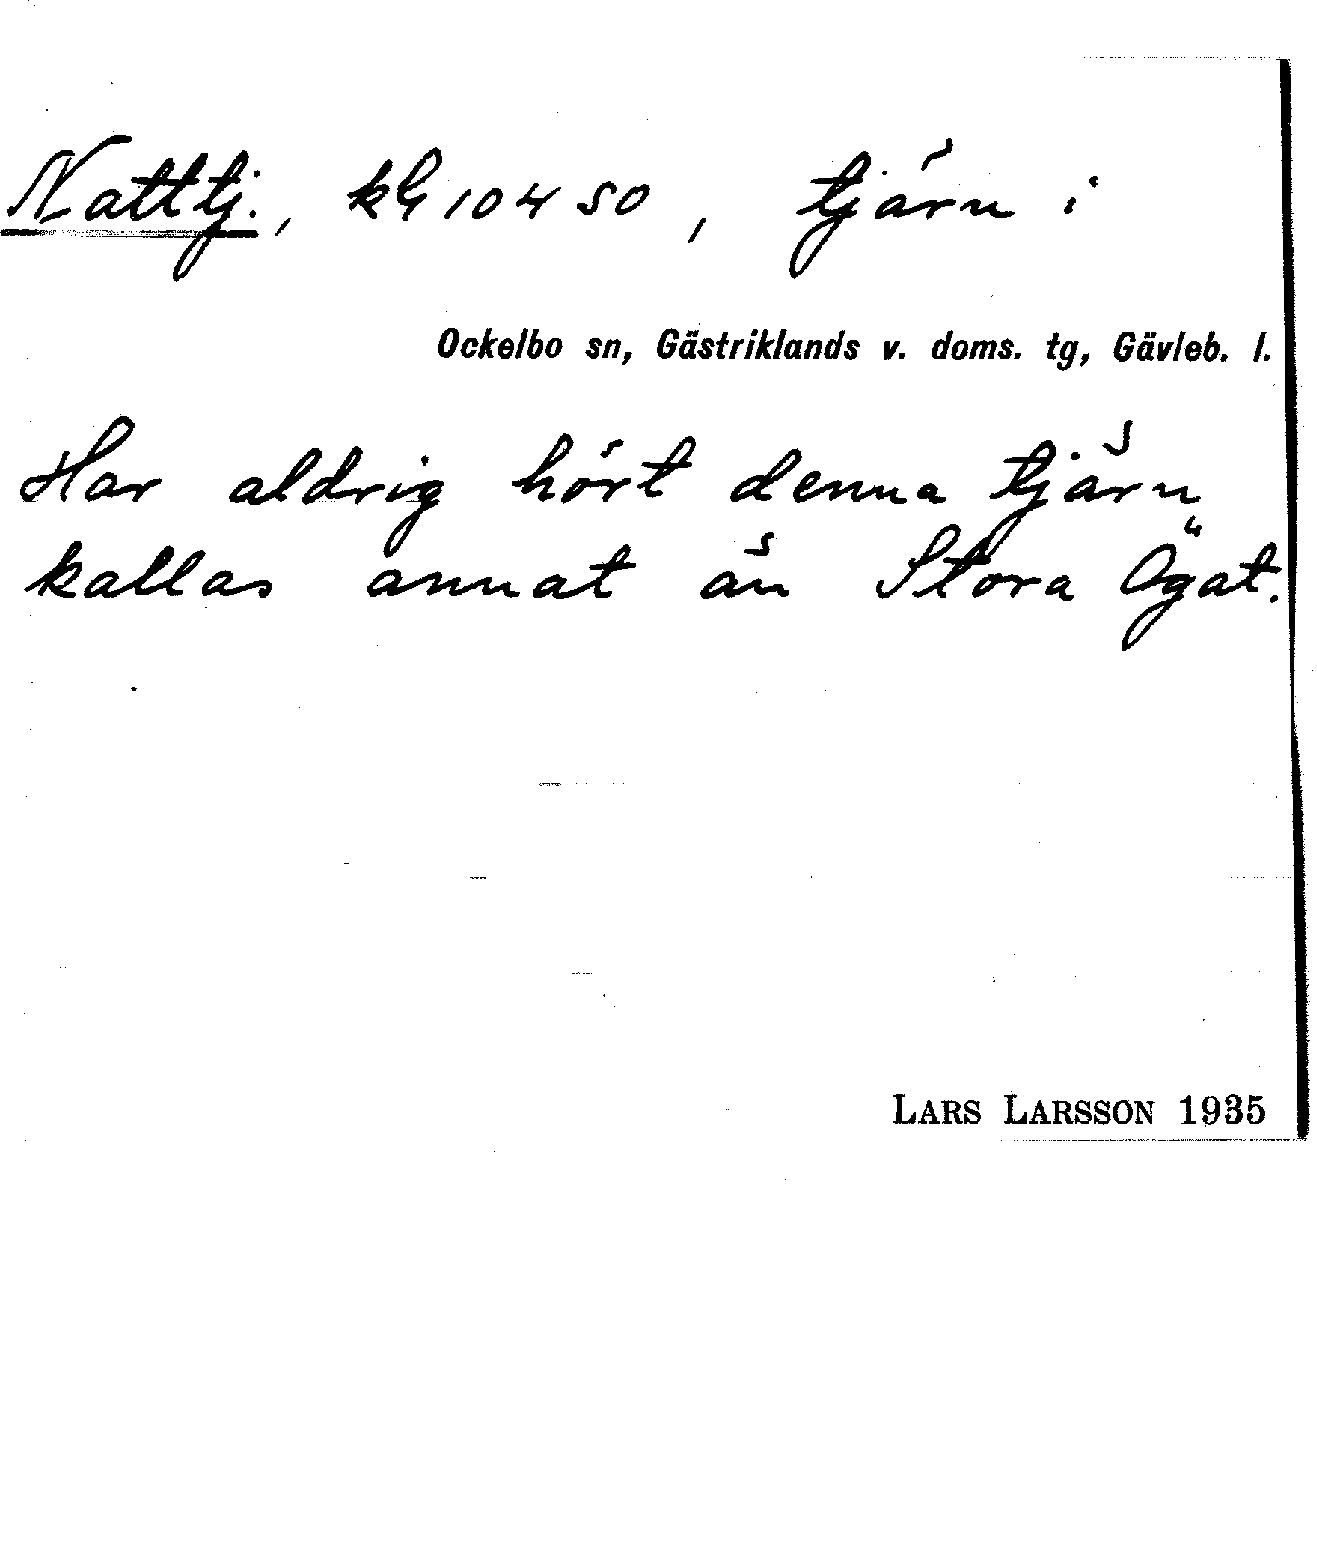 Nattj., kG 104 50, tjärn i
Ockelbo sn, Gästriklands v. doms. tg, Gävleb. l.
Har aldrig hört denna tjärn
kallas annat än Stora Ögat.
LARS LARSSON 1935